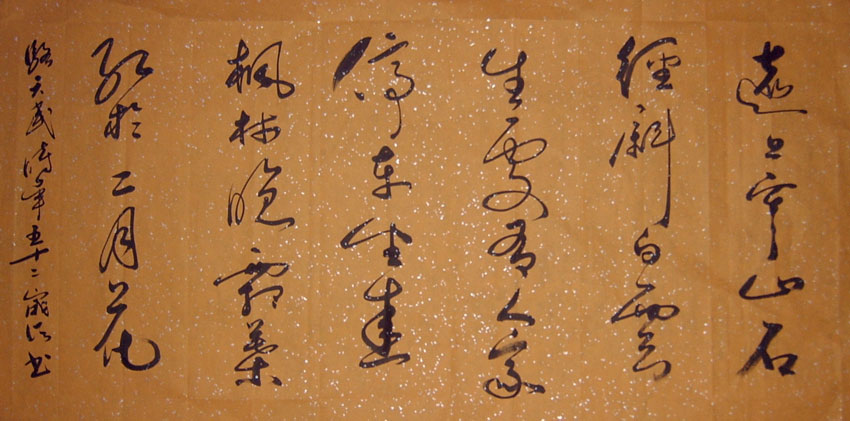 遠上寒山石
徑斜白雲
生處有人家
停車坐愛
楓林晚霜葉
紅於二月花
駱天民時年五十二歲書